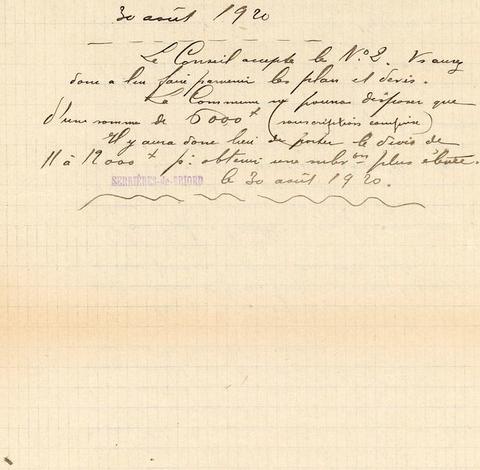 30 août 1920
Le Conseil accepte le N° 2. Vs aurez
donc à lui faire parvenir les plan et devis.
La Commune ne pourra disposer que
d'une somme de 6000 f (souscriptions comprise)
Il y aura donc lieu de porter le devis de
11 à 12000 f p: obtenir une subv on plus élevée.
SERRIÈRES-de-BRIORD le 30 août 1920.